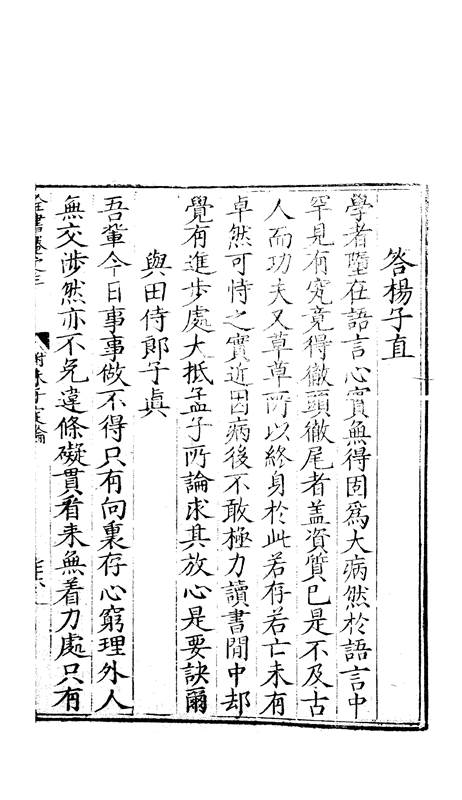 答楊子直
學者墮在語言心實無得固爲大病然於語言中
罕見有究竟得徹頭徹尾者盖資質已是不及古
人而功夫又草草所以終身於此若存若亡未有
卓然可恃之實近因病後不敢極力讀書閒中却
覺有進步處大抵孟子所論求其放心是要訣爾
與田侍郎子真
吾軰今日事事做不得只有向裏存心窮理外人
無交涉然亦不免違條礙貫看来無着力處只有
全書卷之三
附朱子定論